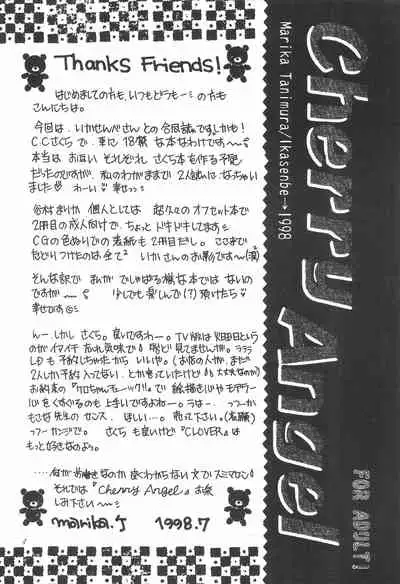 Thanks Friends!
はじめましての方も、いつもどうもーの方も
こんにちは。
今回は、いかせんべさんとの合同誌です。しかも!
C.C.さくらで、更に18禁な本なわけです〜
本当は、お互いそれぞれさくら本を作る予定
だったのですが、私のわがままで2人誌になっちゃい
ました わーい 幸せっ
個人としては 超久々のオフセット本で
2冊目の成人向けで、ちょっとドキドキしてます
CGの色ぬりでの表紙も2冊目だし。ここまで
たどりつけたのは全て いかさんのお影です〜
そんな訳で まんがでしゃばる様な本ではないの
ですが〜 少しでも楽しんで(?)頂けたら
幸せです
んー、しかしさくら。良いですわー。TV版は火曜日という
のがイマイチ 忘れ気味で 殆ど見てませんが。
LDも予約しちゃったからいいや。(お店の人が、まだ
2人しか予約入ってない、とか言っていたけど 大丈夫なのか)
お約束の『ケロちゃんチェック』で 絵描き心や
をくすぐるのも上手いですよねー。
もこな先生のセンス、ほしい…。売って下さい。
ってカンジで。さくらも良いけど『CLOVER』は
もっと好きなのよう。
……何が お書きなのか 良くわからない文でスミマセン
それでは『Cherry Angel』お楽
しみ下さい〜
marika.T 1998.7
Cherry Angel
Marika Tanimura/Ikasenbe→1998
FOR ADULT!